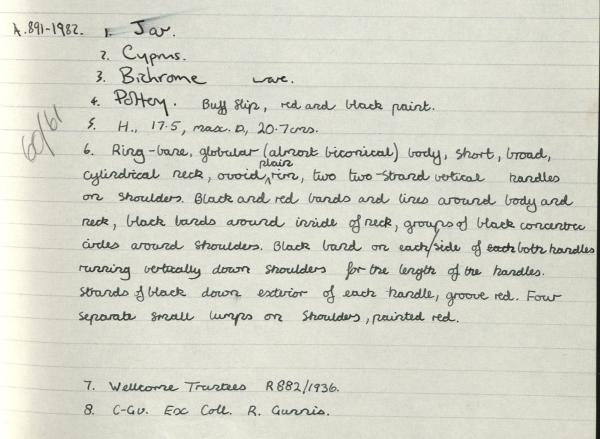 A.891-1982. 1. Jar.
2. Cyprus.
3. Bichrome ware.
4. Pottery. Buff slip, red and black paint.
60/61
5. H., 17.5, max. D, 20.7cms.
6. Ring-base, globular (almost biconical) body, short, broad,
cylindrical neck, ovoid plain rim, two two-strand vertical handles
on shoulders. Black and red bands and lines around body and
neck, black bands around inside of neck, groups of black concentric
circles around shoulders. Black band on each side of each both handles
running vertically down shoulders for the length of the handles.
Strands of black down exterior of each handle, groove red. Four
separate small lumps on shoulders, painted red.
7. Wellcome Trustees R882/1936.
8. C-GU. Ex Coll. R. Gunnis.